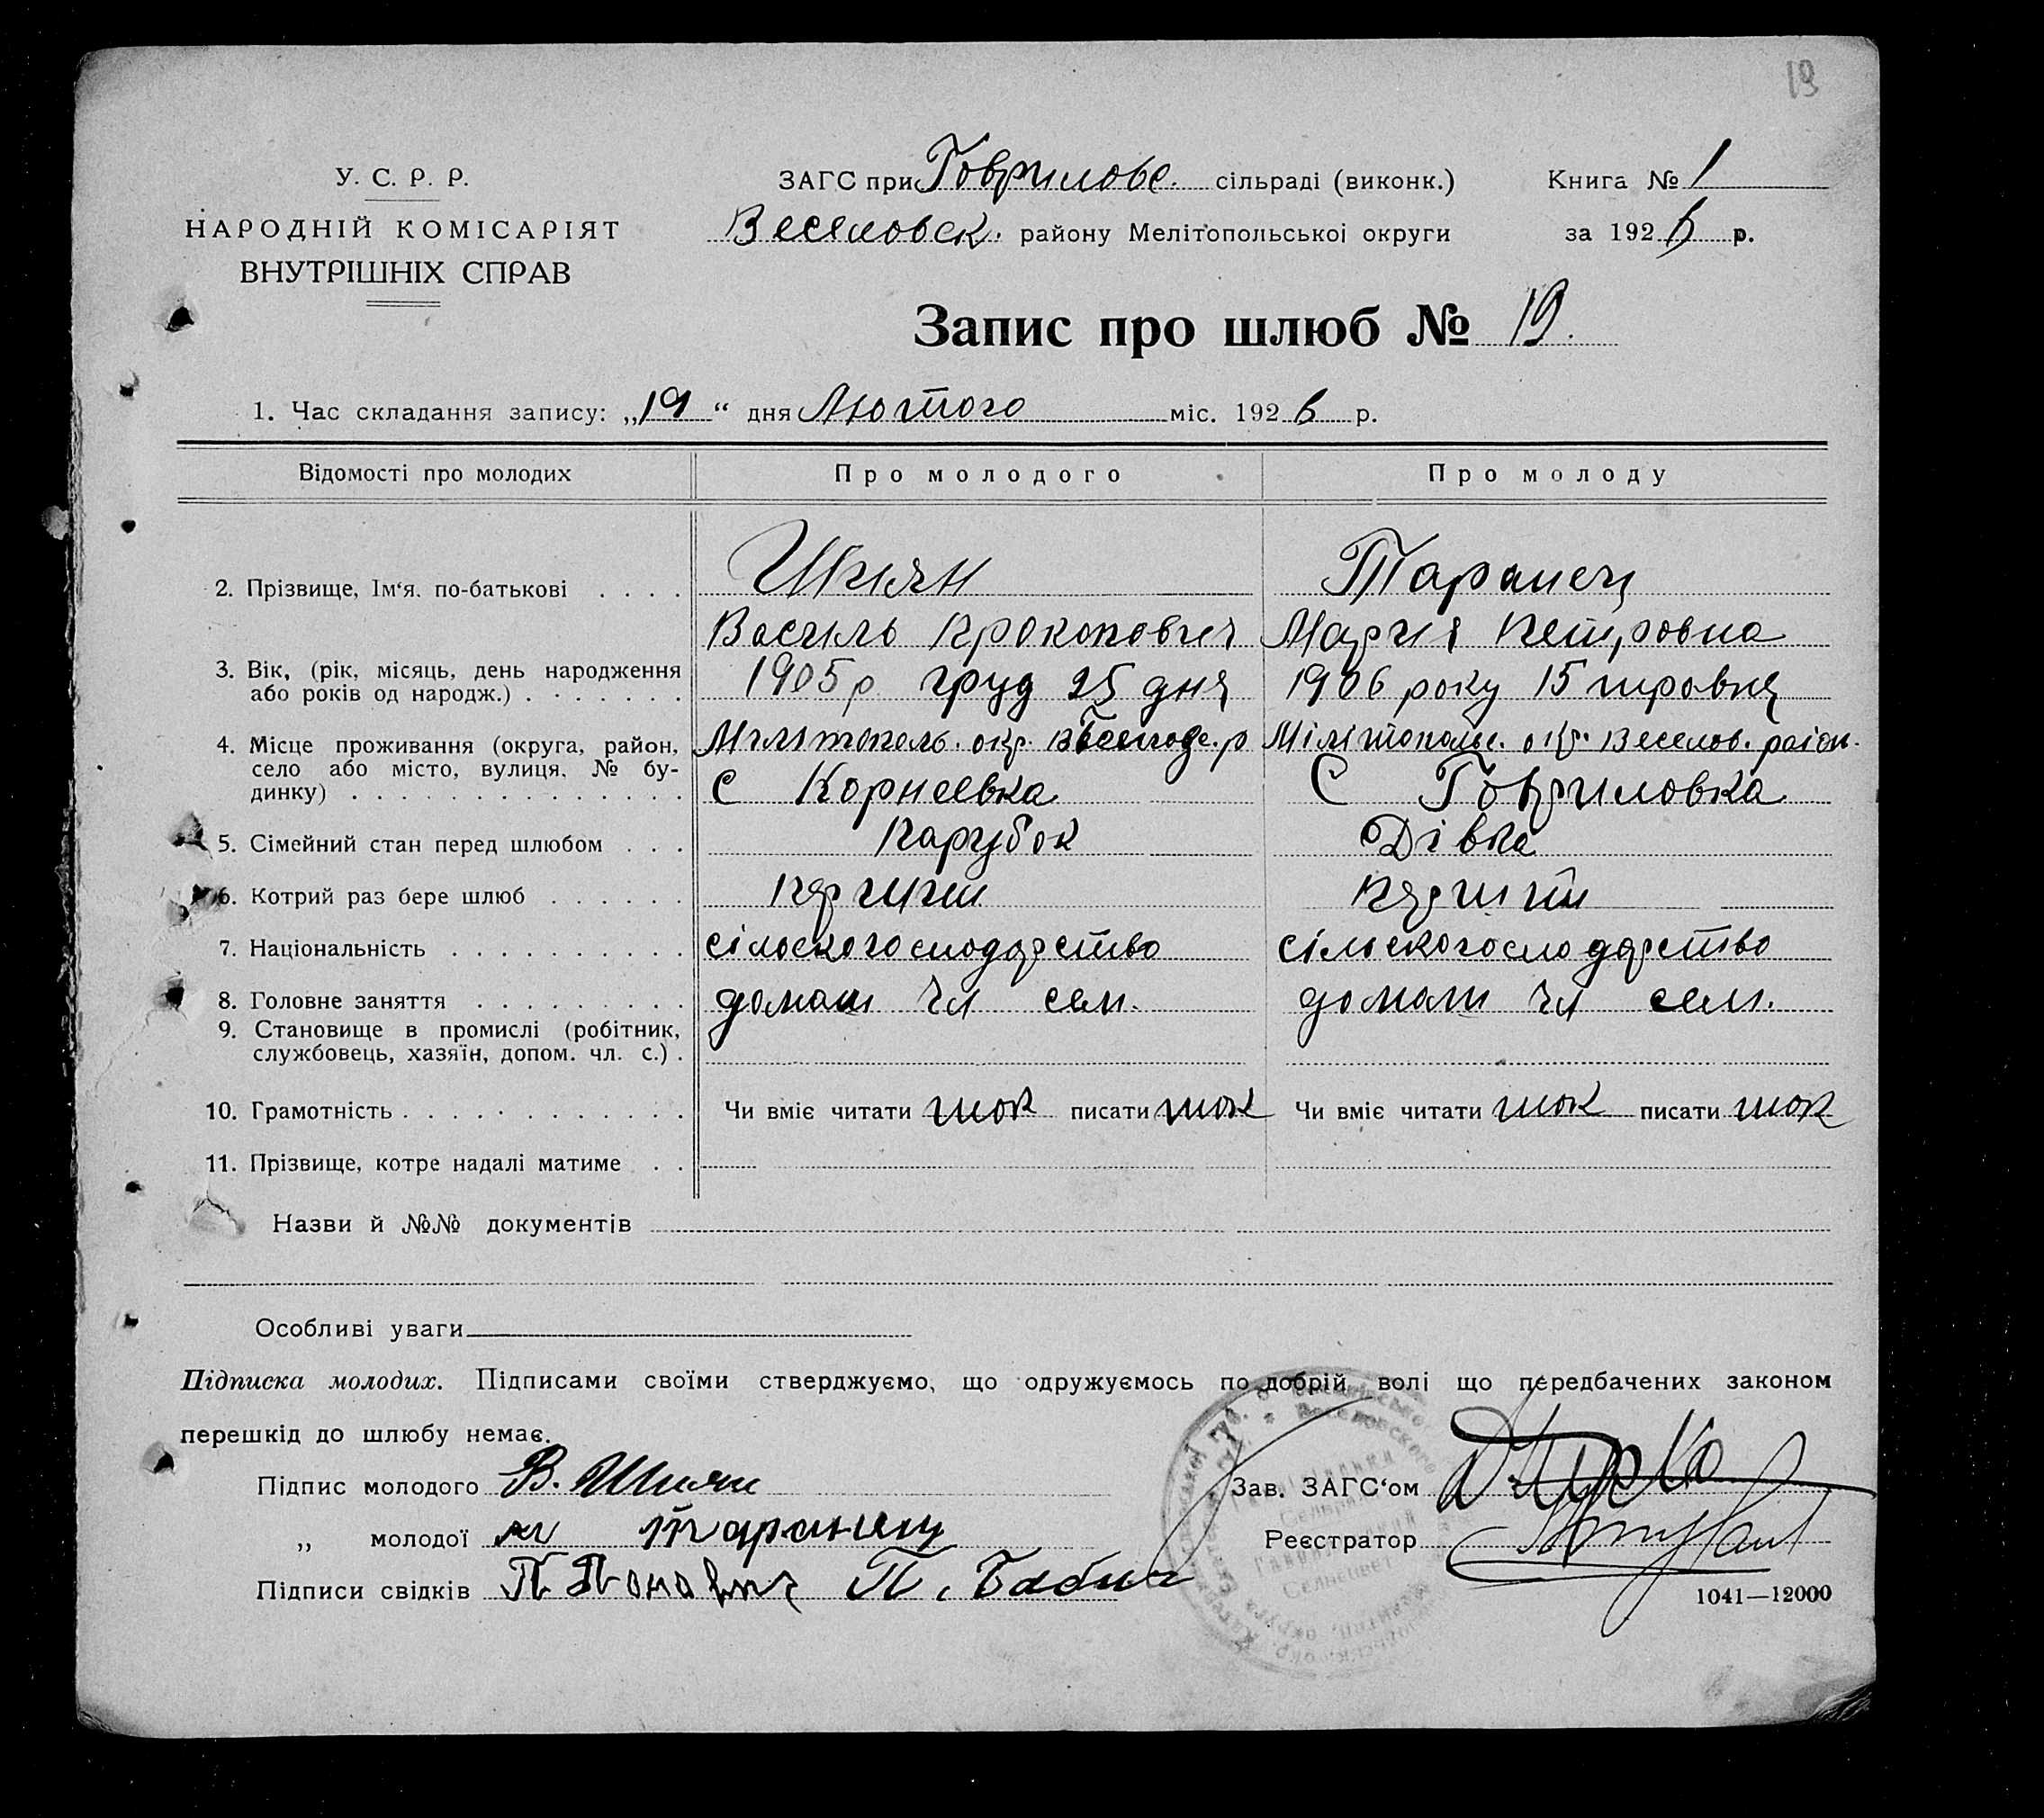 19
У. С. Р. Р.
НАРОДНІЙ КОМІСАРІЯТ
ВНУТРІШНІХ СПРАВ
ЗАГС при Говрилове. сільраді (виконк.)
Веселовск. району Мелітопольської округи
Книга № 1
за 1926 р.
Запис про шлюб № 19.
1. Час складання запису: „19“ дня Лютого міс. 1926 р.
Відомості про молодих Про молодого Про молоду
2. Прізвище, Ім‘я. по-батькові . . . . Шиян Таранец
Василь Прокопович Мария Петровна
3. Вік, (рік, місяць, день народження
або років од народж.) . . . . . . . 1905р груд 25 дня 1906 року 15 травня
4. Місце проживання (округа, район,
село або місто, вулиця. № бу-
динку) . . . . . . . . . . . . . . Мілітополь. окр. р Мілітополье. окр. Веселов. район.
С Корнеевка С Говриловка
5. Сімейний стан перед шлюбом . . . Парубок Дівка
6. Котрий раз бере шлюб . . . . . .
7. Національність . . . . . . . . . . сільскогосподарство сільскогосподарство
8. Головне заняття . . . . . . . . . домаш чл сем. домаш чл сем.
9. Становище в промислі (робітник,
службовець, хазяїн, допом. чл. с.) .
10. Грамотність . . . . . . . . . . . . Чи вміє читати так писати так Чи вміє читати так писати так
11. Прізвище, котре надалі матиме . .
Назви й №№ документів
Особливі уваги
Підписка молодих. Підписами своїми стверджуємо, що одружуємось по добрій волі що передбачених законом
перешкід до шлюбу немає.
Підпис молодого В. Шиян
Зав. ЗАГС‘ом
„ молодої м таранец
Реєстратор
Підписи свідків П Панавич П. Бабич
1041—12000